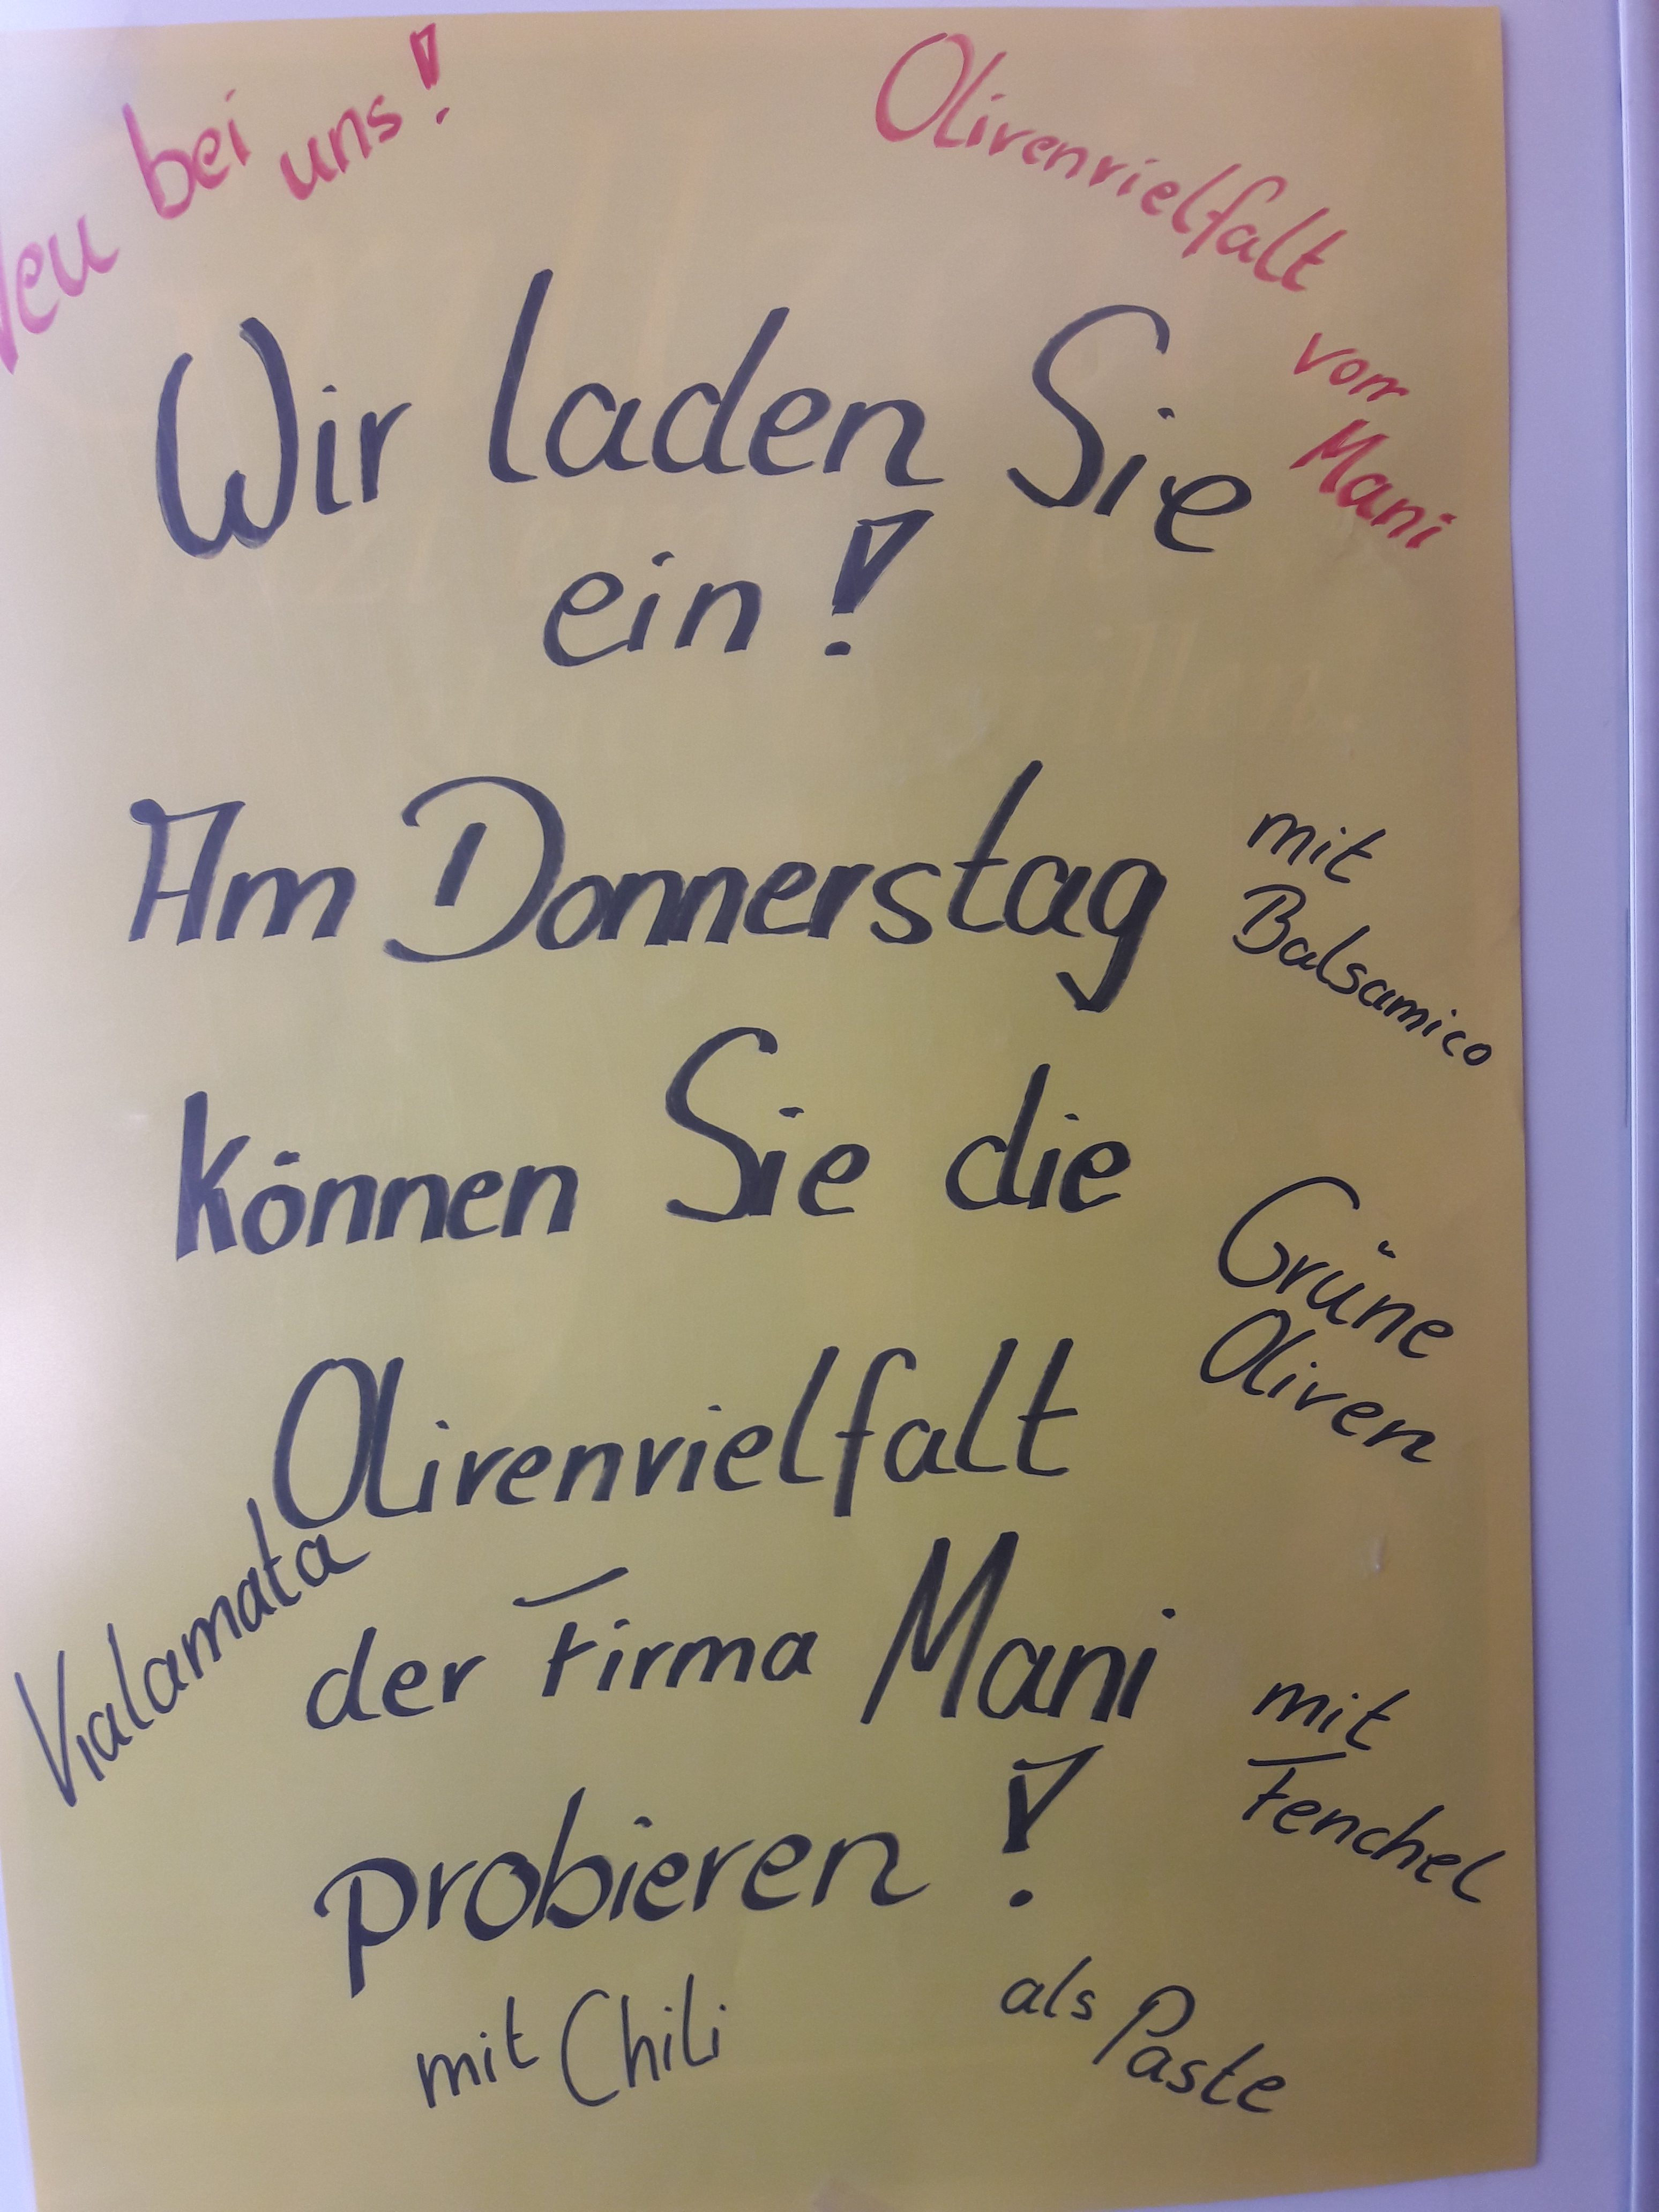 Neu bei uns!
Olivenvielfalt
von
Mani
Wir laden Sie
ein!
Am Donnerstag
mit
Balsamico
können Sie die
Grüne
Oliven
Olivenvielfalt
Kalamata
der Firma Mani
mit
Fenchel
probieren!
mit Chili
als Paste